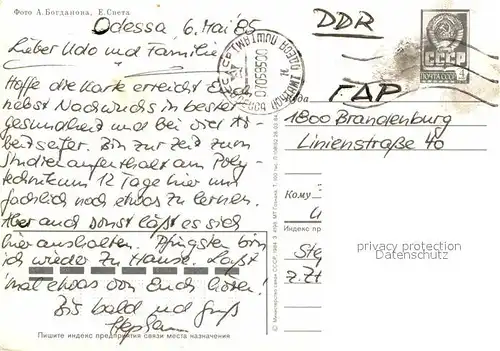 Фото А. Богданова, Е. Света
Odessa, 6. Mai '85
Lieber Udo und Familie
Hoffe die Karte erreicht Euch
nebst Nachwuchs in bester
Gesundheit und bei vier Ar-
beitseifer. Bin zur Zeit zum
Studienaufenthalt am Poly-
technikum 12 Tage hier um
fachlich noch etwas zu lernen.
Aber auch sonst läßt es sich
hier aushalten. Pfingsten bin
ich wieder zu Hause. Laßt
mal etwas von Euch hören!
Bis bald und Gruß
Stephan
Пишите индекс предприятия связи места назначения
DDR
ГДР
ПОЧТА СССР
4
070585
1800 Brandenburg
Linienstraße 40
Кому
Индекс пр
Ste
z.Zt
© Министерство связи СССР, 1984
privacy protection
Datenschutz